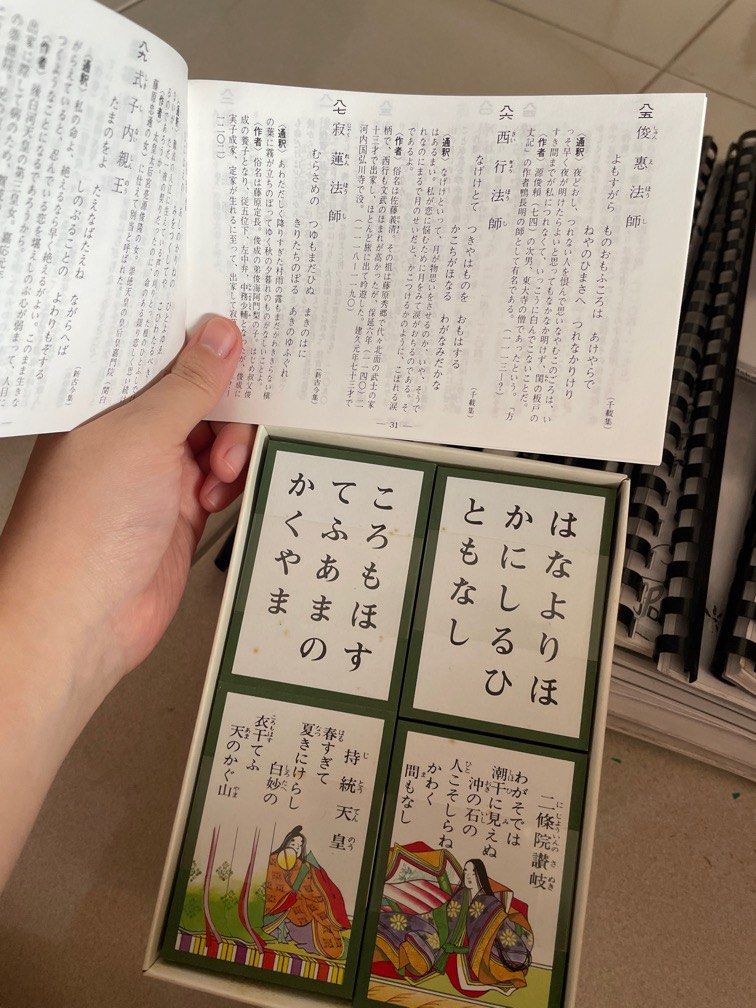 八五 俊恵法師
よもすがら ものおもふころは あけやらで
ねやのひまさへ つれなかりけり
(千載集)
〈通釈〉夜どおし、つれない人を恨んで思いなやむこのごろは、い
っそ早く夜が明けたらよいと思ってもなかなか明けず、閨の板戸の
すき間までが私につれなくて、いっこうに白んでこないことだ。
〈作者〉源俊頼(七四)の次男、東大寺の僧であったという。「方
丈記」の作者鴨長明の師として有名である。(一一一三―?)
八六 西行法師
なげけとて つきやはものを おもはする
かこちがほなる わがなみだかな
(千載集)
〈通釈〉なげけといって、月が物思いをさせるのか、いや、そうで
はあるまい。私が恋に悩むために月をみて涙がおちるのである。そ
れなのにまるで月のせいだと、かこつけるかのように、こぼれる涙
であるよ。
〈作者〉俗名は佐藤義清。その祖は藤原秀郷で代々北面の武士の家
柄で、西行も文武のほまれが高かったが、保延六年(一一四〇)二
十三才で出家し、ほとんど旅に出て吟遊した。建久元年七十三才で
河内国弘川寺で没。(一一一八-一一九〇)
八七 寂蓮法師
むらさめの つゆもまだひぬ まきのはに
きりたちのぼる あきのゆふぐれ
(新古今集)
〈通釈〉あわただしく降りすぎた村雨の露もまだかわききらない槇
の葉に霧が立ちのぼってゆく秋の夕暮れのものがなしいことよ。
〈作者〉俗名は藤原定長。俊成の弟俊海阿闍梨の
成の養子となり、従五位下、左中弁、中務少輔となったが、俊成に
実子成家、定家が生れるに至って、出家して寂
二〇二)
― 31 ―
八九 式子内親王
たまのをよ たえなばたえね ながらへば
しのぶることの よわりもぞする
(新古今集)
はなよりほ
かにしるひ
ともなし
ころもほす
てふあまの
かくやま
二條院讃岐
わがそでは
潮干に見えぬ
沖の石の
人こそしらね
かわく
間もなし
持統天皇
春すぎて
夏きにけらし
白妙の
衣干てふ
天のかぐ山